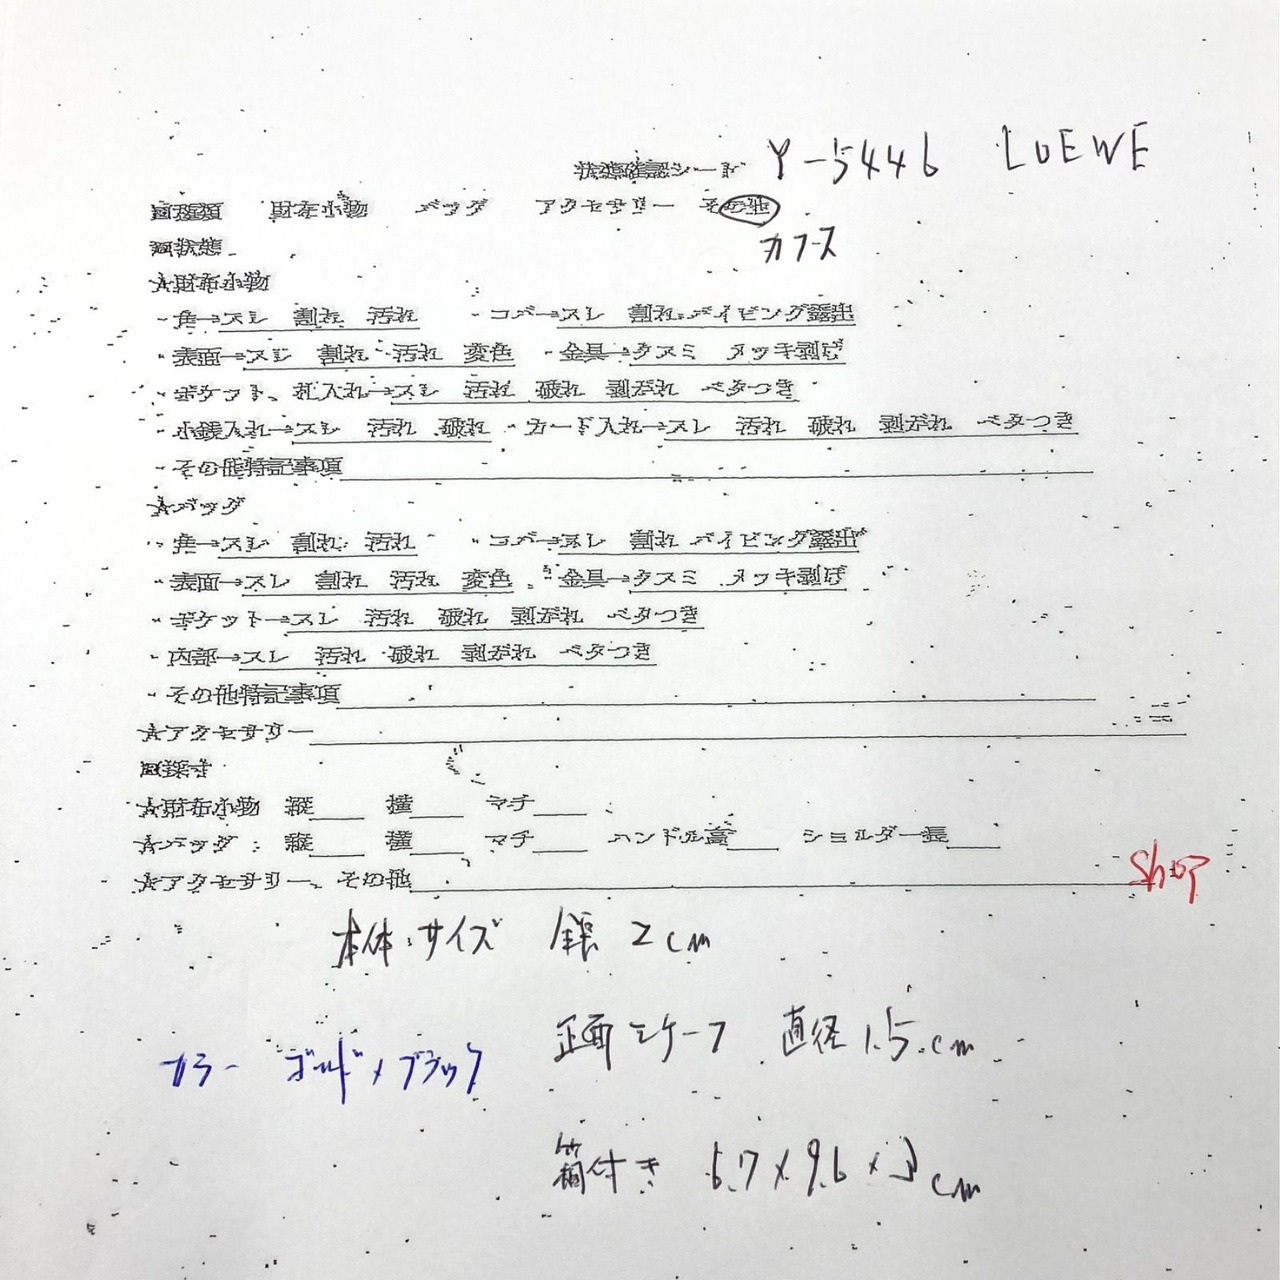 状態確認シート Y-5446 LOEWE
▣種類 財布小物 バッグ アクセサリー その他
カフース
▣状態
★財布小物
・角→スレ 割れ 汚れ ・コバ→スレ 割れ パイピング露出
・表面→スレ 割れ 汚れ 変色 ・金具→クスミ メッキ剥げ
・ポケット、札入れ→スレ 汚れ 破れ 剥がれ ベタつき
・小銭入れ→スレ 汚れ 破れ ・カード入れ→スレ 汚れ 破れ 剥がれ ベタつき
・その他特記事項
★バッグ
・角→スレ 割れ 汚れ ・コバ→スレ 割れ パイピング露出
・表面→スレ 割れ 汚れ 変色 ・金具→クスミ メッキ剥げ
・ポケット→スレ 汚れ 破れ 剥がれ ベタつき
・内部→スレ 汚れ 破れ 剥がれ ベタつき
・その他特記事項
★アクセサリー
▣採寸
★財布小物 縦 横 マチ
★バッグ : 縦 横 マチ ハンドル高 ショルダー長
★アクセサリー、その他
shop
本体サイズ 2cm
正面 直径 1.5cm
カラー ゴールド×ブラック
箱付き 6.7×9.6×3cm